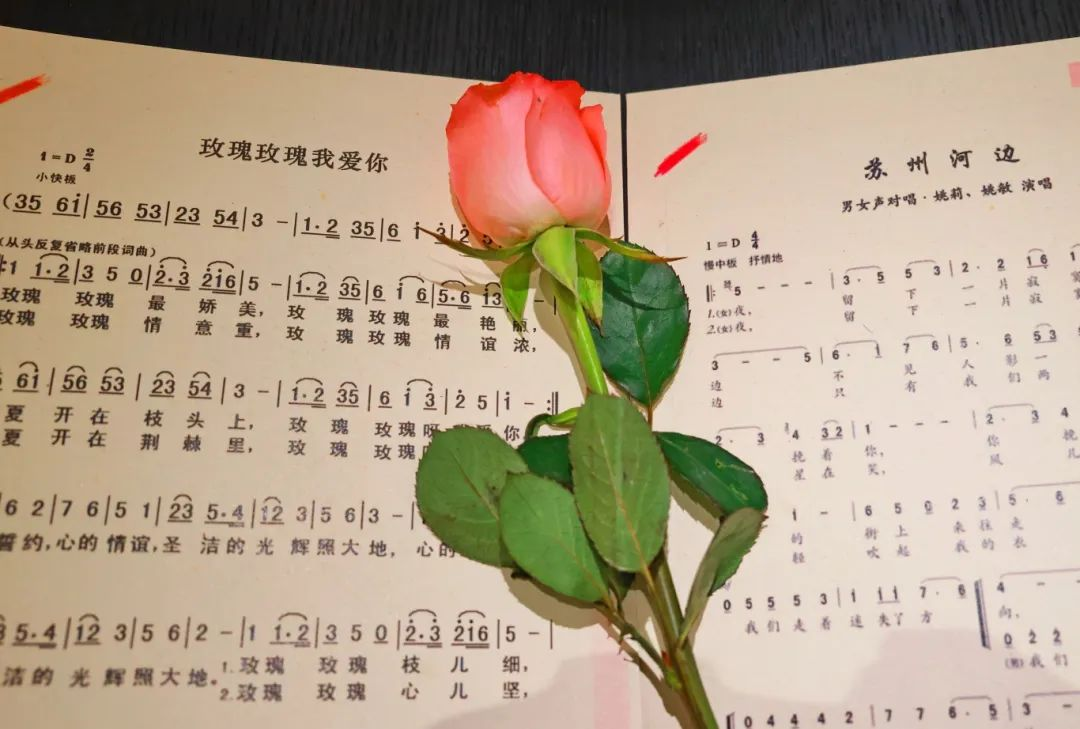 玫瑰玫瑰我爱你
1=D 2/4
小快板
(35 6i|56 53|23 54|3 -|1·2 35|6 i
(从头反复省略前段词曲)
1 1·2|3 5 0|2·3 2i6|5 -|1·2 35|6 i 6|5·6 i3
玫瑰 玫瑰 最 娇 美, 玫 瑰 玫瑰 最 艳 丽,
玫瑰 玫瑰 情 意 重, 玫 瑰 玫瑰 情 谊 浓,
6i|56 53|23 54|3 -|1·2 35|6 i 3|2 5|i -:‖
夏 开 在 枝 头 上, 玫 瑰 玫瑰
夏 开 在 荆 棘 里, 玫 瑰 玫瑰
6 2|7 6|5 1|23 5·4|12 3|5 6|3 -|
誓约,心的 情谊,圣 洁的 光 辉照大地, 心的
5·4|12 3|5 6|2 -|1 1·2|3 5 0|2·3 2i6|5 -|
洁的 光 辉照大地。1.玫瑰 玫瑰 枝 儿 细,
2.玫瑰 玫瑰 心 儿 坚,
苏州河边
男女声对唱·姚莉、姚敏 演唱
1=D 4/4
慢中板 抒情地
5 - - -|3· 5 5 3|2· 2 i6|
1.(女)夜, 留 下 一 片 寂
2.(女)夜, 留 下 一 片 寂
3 - - 5|6· i 7 6|5· 6 53
边 不 见 人 影 一
边 只 有 我 们 两
2· 3 4 32|1 - - -|2· 3 4
挽 着 你, 你 挽
星 在 笑, 风 儿
i -|6 5 0 2 3|5· 6
的 街 上 来 往 走
轻 吹 起 我 的 衣
0 5 5 5 3|i i i 7· 6|4 - -
我 们 走 着 迷 失 了 方 向,
0 2 2
(男)我们
0 4 4 4 2|7 7 6· 5|3 -